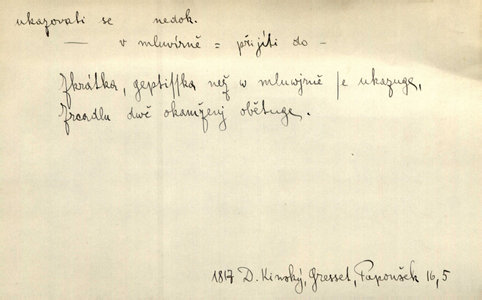 ukazovati se nedok.
— v mluvírně = přijíti do -
Zkrátka, geptisska než w mluwjrně se ukazuge,
Zrcadlu dwě okamženj obětuge.
1817 D. Kinský, Gresset, Papoušek 16, 5